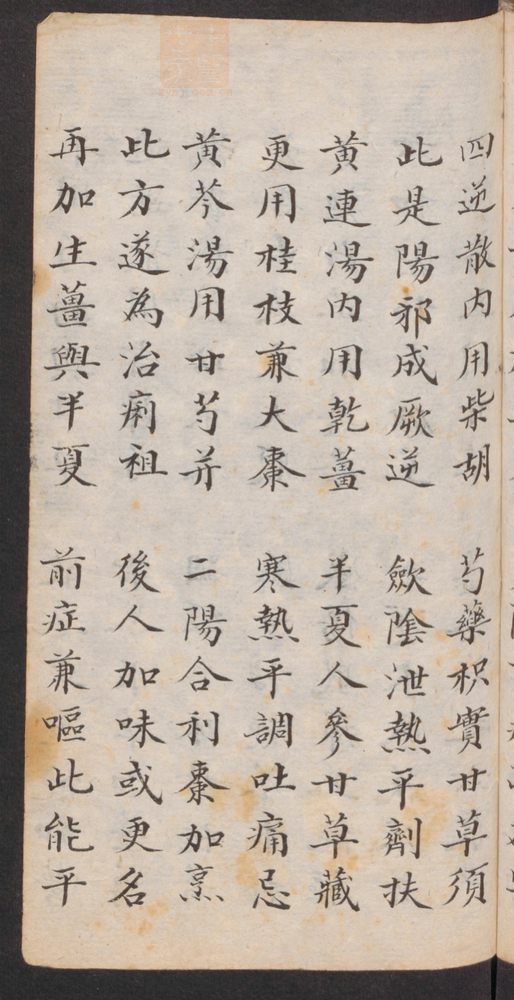 四逆散内用柴胡 芍藥枳實甘草須
此是陽邪成厥逆 歛陰泄熱平劑扶
黃連湯内用乾薑 半夏人參甘草藏
更用桂枝兼大棗 寒熱平調吐痛忌
黃芩湯用甘芍并 二陽合利棗加烹
此方遂為治痢祖 後人加味或更名
再加生薑與半夏 前症兼嘔此能平